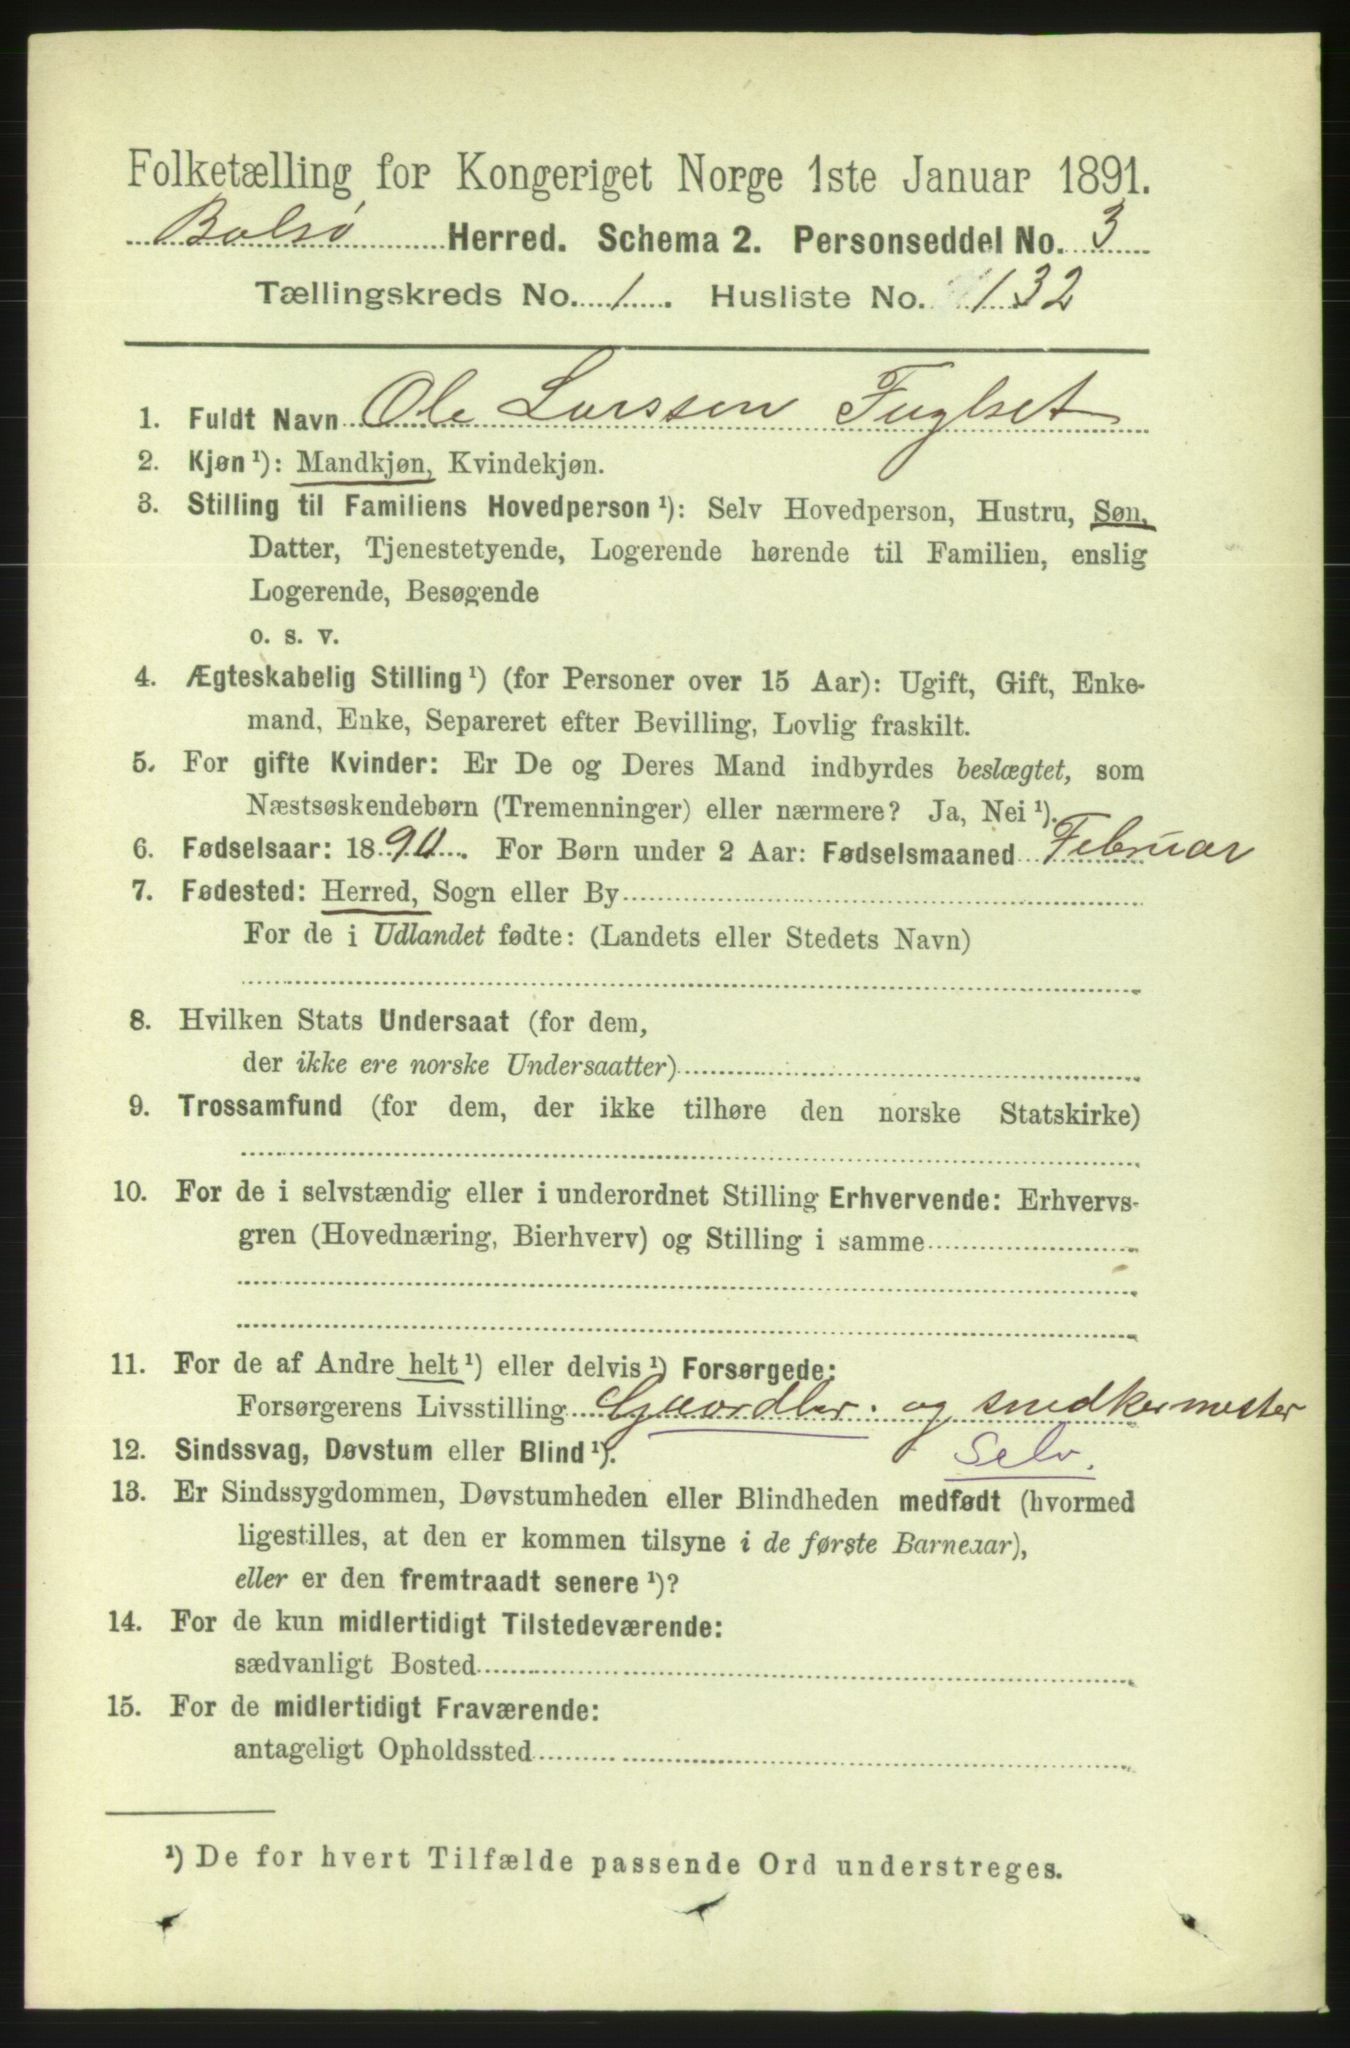 Folketælling for Kongeriget Norge 1ste Januar 1891.
Bolsø Herred. Schema 2. Personseddel No. 3
Tællingskreds No. 1. Husliste No. 132
1. Fuldt Navn Ole Larssen Fuglset
2. Kjøn¹): Mandkjøn, Kvindekjøn.
3. Stilling til Familiens Hovedperson¹): Selv Hovedperson, Hustru, Søn,
Datter, Tjenestetyende, Logerende hørende til Familien, enslig
Logerende, Besøgende
o. s. v.
4. Ægteskabelig Stilling¹) (for Personer over 15 Aar): Ugift, Gift, Enke-
mand, Enke, Separeret efter Bevilling, Lovlig fraskilt.
5. For gifte Kvinder: Er De og Deres Mand indbyrdes beslægtet, som
Næstsøskendebørn (Tremenninger) eller nærmere? Ja, Nei¹).
6. Fødselsaar: 1890. For Børn under 2 Aar: Fødselsmaaned Februar
7. Fødested: Herred, Sogn eller By
For de i Udlandet fødte: (Landets eller Stedets Navn)
8. Hvilken Stats Undersaat (for dem,
der ikke ere norske Undersaatter)
9. Trossamfund (for dem, der ikke tilhøre den norske Statskirke)
10. For de i selvstændig eller i underordnet Stilling Erhvervende: Erhvervs-
gren (Hovednæring, Bierhverv) og Stilling i samme
11. For de af Andre helt¹) eller delvis¹) Forsørgede:
Forsørgerens Livsstilling Gaardbr. og snedkermester
Selv.
12. Sindssvag, Døvstum eller Blind¹).
13. Er Sindssygdommen, Døvstumheden eller Blindheden medfødt (hvormed
ligestilles, at den er kommen tilsyne i de første Barneaar),
eller er den fremtraadt senere¹)?
14. For de kun midlertidigt Tilstedeværende:
sædvanligt Bosted
15. For de midlertidigt Fraværende:
antageligt Opholdssted
¹) De for hvert Tilfælde passende Ord understreges.